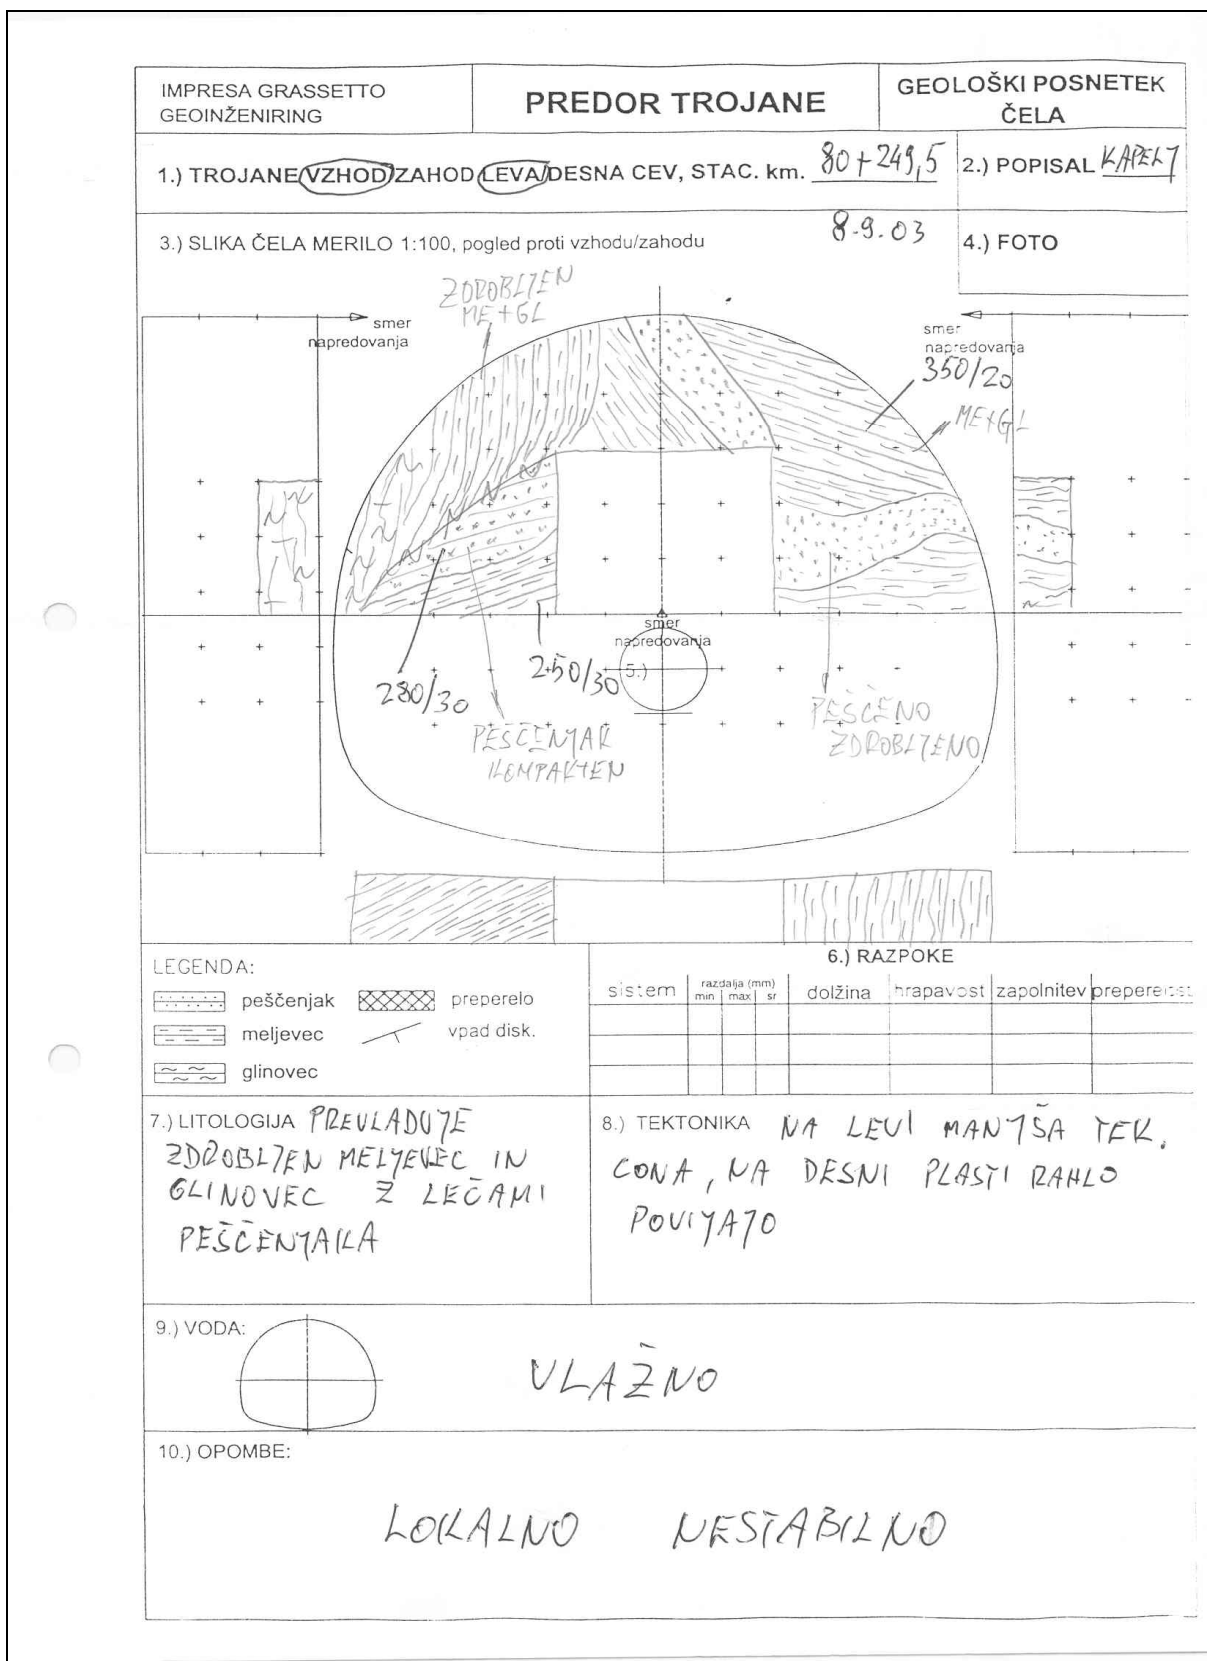 IMPRESA GRASSETTO
GEOINŽENIRING
PREDOR TROJANE
GEOLOŠKI POSNETEK
ČELA
1.) TROJANE VZHOD/ZAHOD LEVA/DESNA CEV, STAC. km. 80+249,5
2.) POPISAL KAPELJ
3.) SLIKA ČELA MERILO 1:100, pogled proti vzhodu/zahodu 8.9.03
4.) FOTO
ZDROBLJEN
ME+GL
smer
napredovanja
smer
napredovanja
350/20
ME+GL
smer
napredovanja
5.)
280/30
250/30
PEŠČENJAK
KOMPAKTEN
PEŠČENO
ZDROBLJENO
LEGENDA:
peščenjak
preperelo
meljevec
vpad disk.
glinovec
6.) RAZPOKE
sistem
razdalja (mm)
min max sr
dolžina hrapavost zapolnitev preperelost
7.) LITOLOGIJA PREVLADUJE
ZDROBLJEN MELJEVEC IN
GLINOVEC Z LEČAMI
PEŠČENJAKA
8.) TEKTONIKA NA LEVI MANJŠA TEK.
CONA, NA DESNI PLASTI RAHLO
POVIJAJO
9.) VODA:
VLAŽNO
10.) OPOMBE:
LOKALNO NESTABILNO